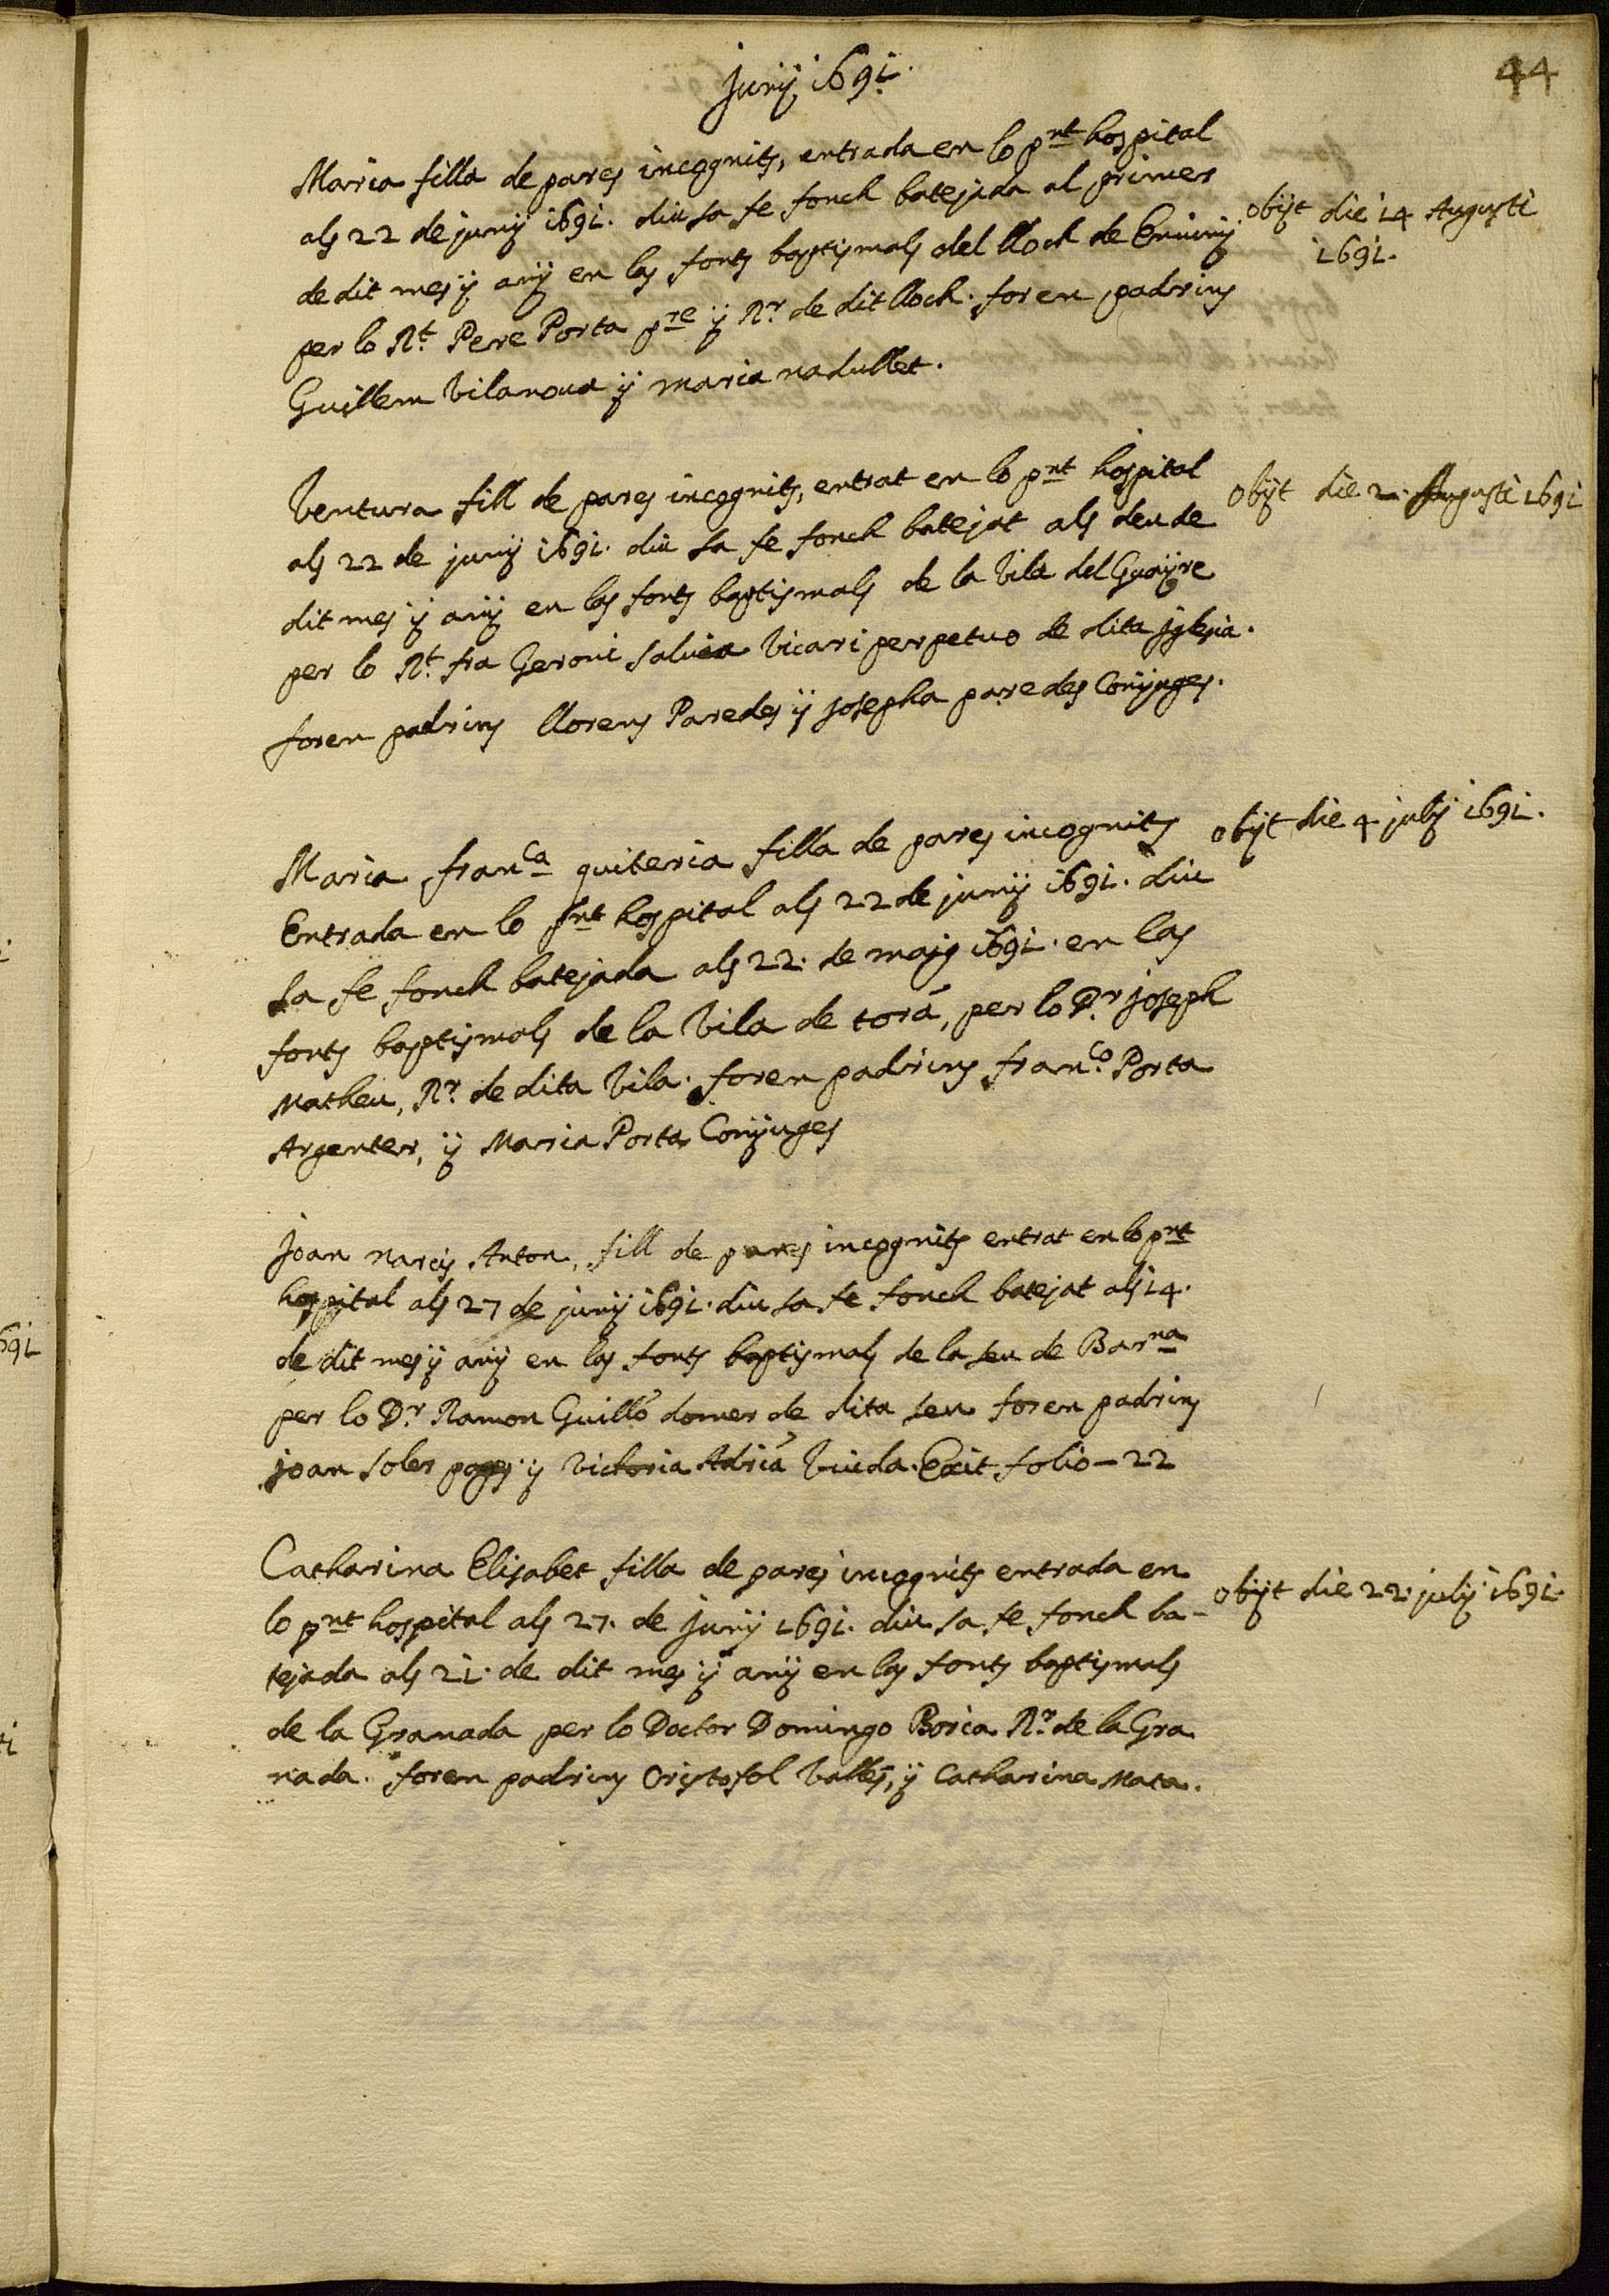 44
Juny 1691.
Maria filla de pares incognits, entrada en lo pnt hospital
als 22 de juny 1691. diu sa fe fonch batejada al primer
de dit mes y any en las fonts baptismals del lloch de
per lo Rt. Pere Porta pre y Rr. de dit lloch. foren padrins
Guillem Vilanova y maria nadullet.
obijt die 14 Augusti
1691.
Ventura fill de pares incognits, entrat en lo pnt hospital
als 22 de juny 1691. diu sa fe fonch batejat als deu de
dit mes y any en las fonts baptismals de la Vila del Guayre
per lo Rt. fra Geroni Vicari perpetuo de dita Iglesia.
foren padrins llorens Paredes y Josepha paredes Conjuges.
obijt die Augusti 1691
Maria, franca quiteria filla de pares incognits
Entrada en lo pnt hospital als 22 de juny 1691. diu
sa fe fonch batejada als 22. de maig 1691. en las
fonts baptismals de la Vila de torá, per lo Dr. Joseph
Matheu, Rr. de dita Vila. foren padrins franco. Porta
Argenter, y Maria Porta Conjuges
obijt die 4 julij 1691.
Joan narcis Anton, fill de pares incognits entrat en lo pnt
hospital als 27 de juny 1691. diu sa fe fonch batejat als 14.
de dit mes y any en las fonts baptismals de la seu de Barna
per lo Dr. Ramon Guilló domer de dita seu foren padrins
joan soler pages y Victoria Adriá Viuda. Exit folio - 22
Catharina Elisabet filla de pares incognits entrada en
lo pnt hospital als 27. de Juny 1691. diu sa fe fonch ba-
tejada als 21. de dit mes y any en las fonts baptismals
de la Granada per lo Doctor Domingo Boria Rr. de la Gra
nada. foren padrins Cristofol Vallés, y Catharina Mata.
obijt die 22. julij 1691.